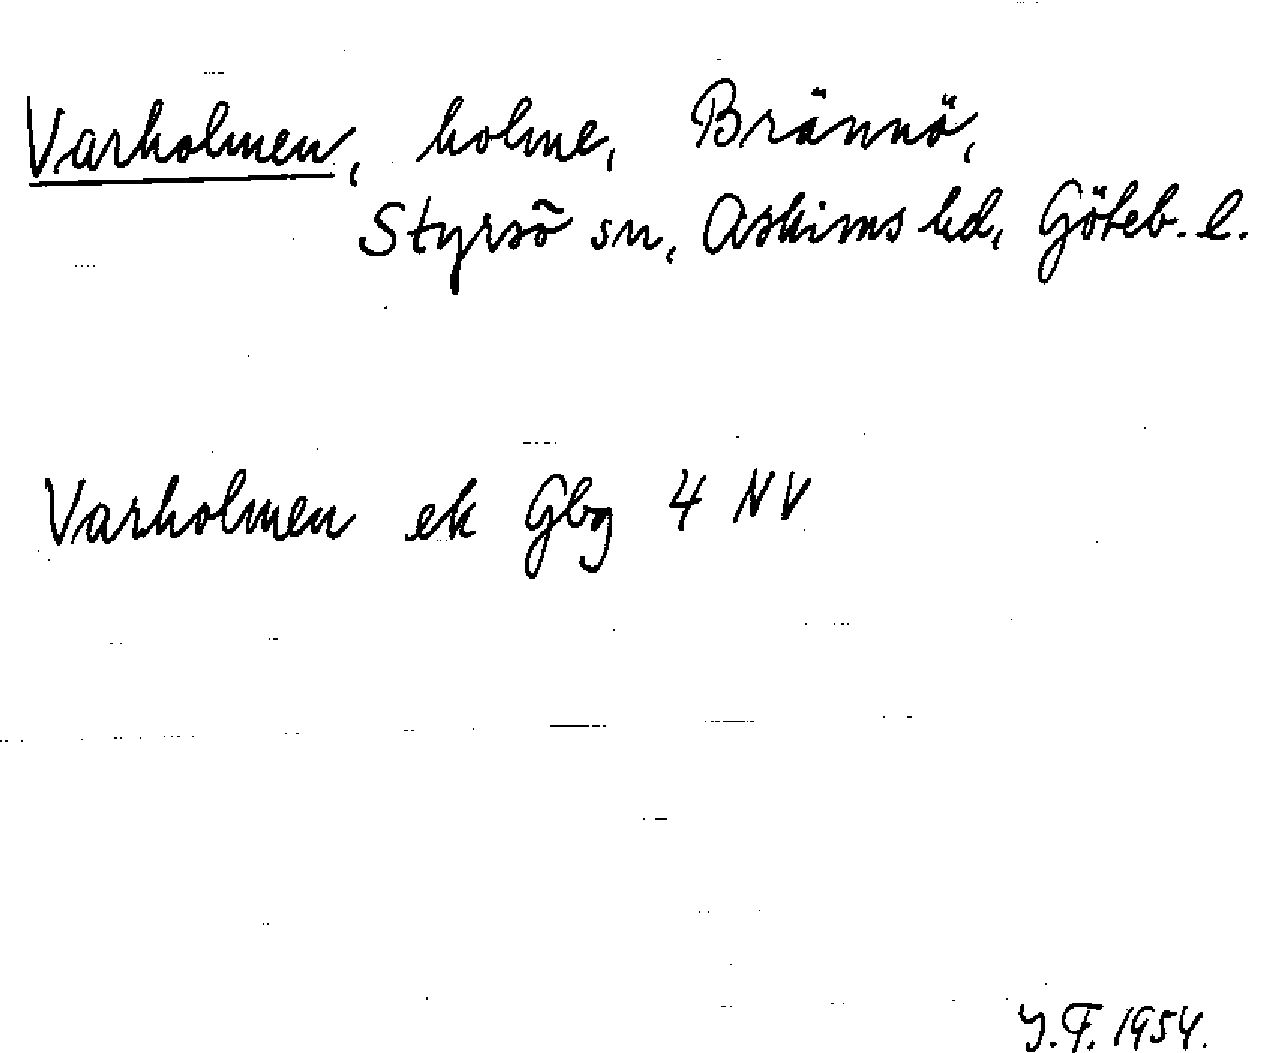 Varholmen, holme, Brännö,
Styrsö sn, Askims hd, Göteb. l.
Varholmen ek Gbg 4 NV
Y.F. 1954.